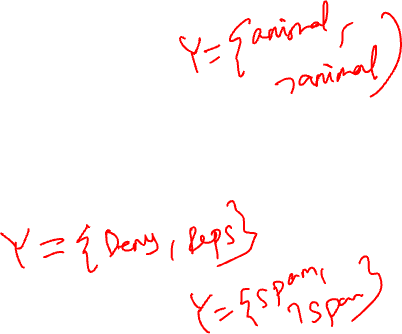 Y={animal,
¬animal}
Y={Dems, Reps}
Y={spam,
¬spam}